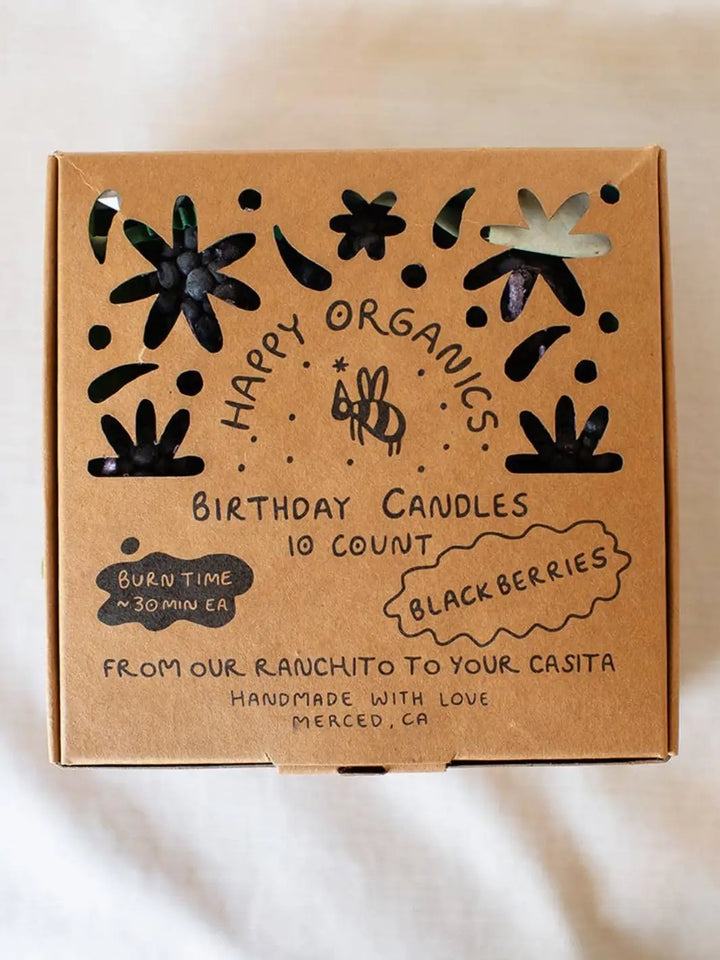 HAPPY ORGANICS
BIRTHDAY CANDLES
10 COUNT
BURN TIME
~30 MIN EA
BLACKBERRIES
FROM OUR RANCHITO TO YOUR CASITA
HANDMADE WITH LOVE
MERCED, CA